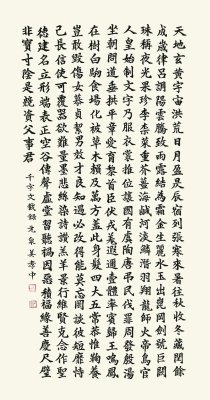 天地玄黃宇宙洪荒日月盈昃辰宿列張寒來暑往秋收冬藏閏餘
成歲律呂調陽雲騰致雨露結為霜金生麗水玉出崑岡劍號巨闕
珠稱夜光果珍李柰菜重芥薑海鹹河淡鱗潛羽翔龍師火帝鳥官
人皇始制文字乃服衣裳推位讓國有虞陶唐弔民伐罪周發殷湯
坐朝問道垂拱平章愛育黎首臣伏戎羌遐邇壹體率賓歸王鳴鳳
在樹白駒食場化被草木賴及萬方蓋此身髮四大五常恭惟鞠養
豈敢毀傷女慕貞絜男效才良知過必改得能莫忘罔談彼短靡恃
己長信使可覆器欲難量墨悲絲染詩讚羔羊景行維賢克念作聖
德建名立形端表正空谷傳聲虛堂習聽禍因惡積福緣善慶尺璧
非寶寸陰是競資父事君
千字文